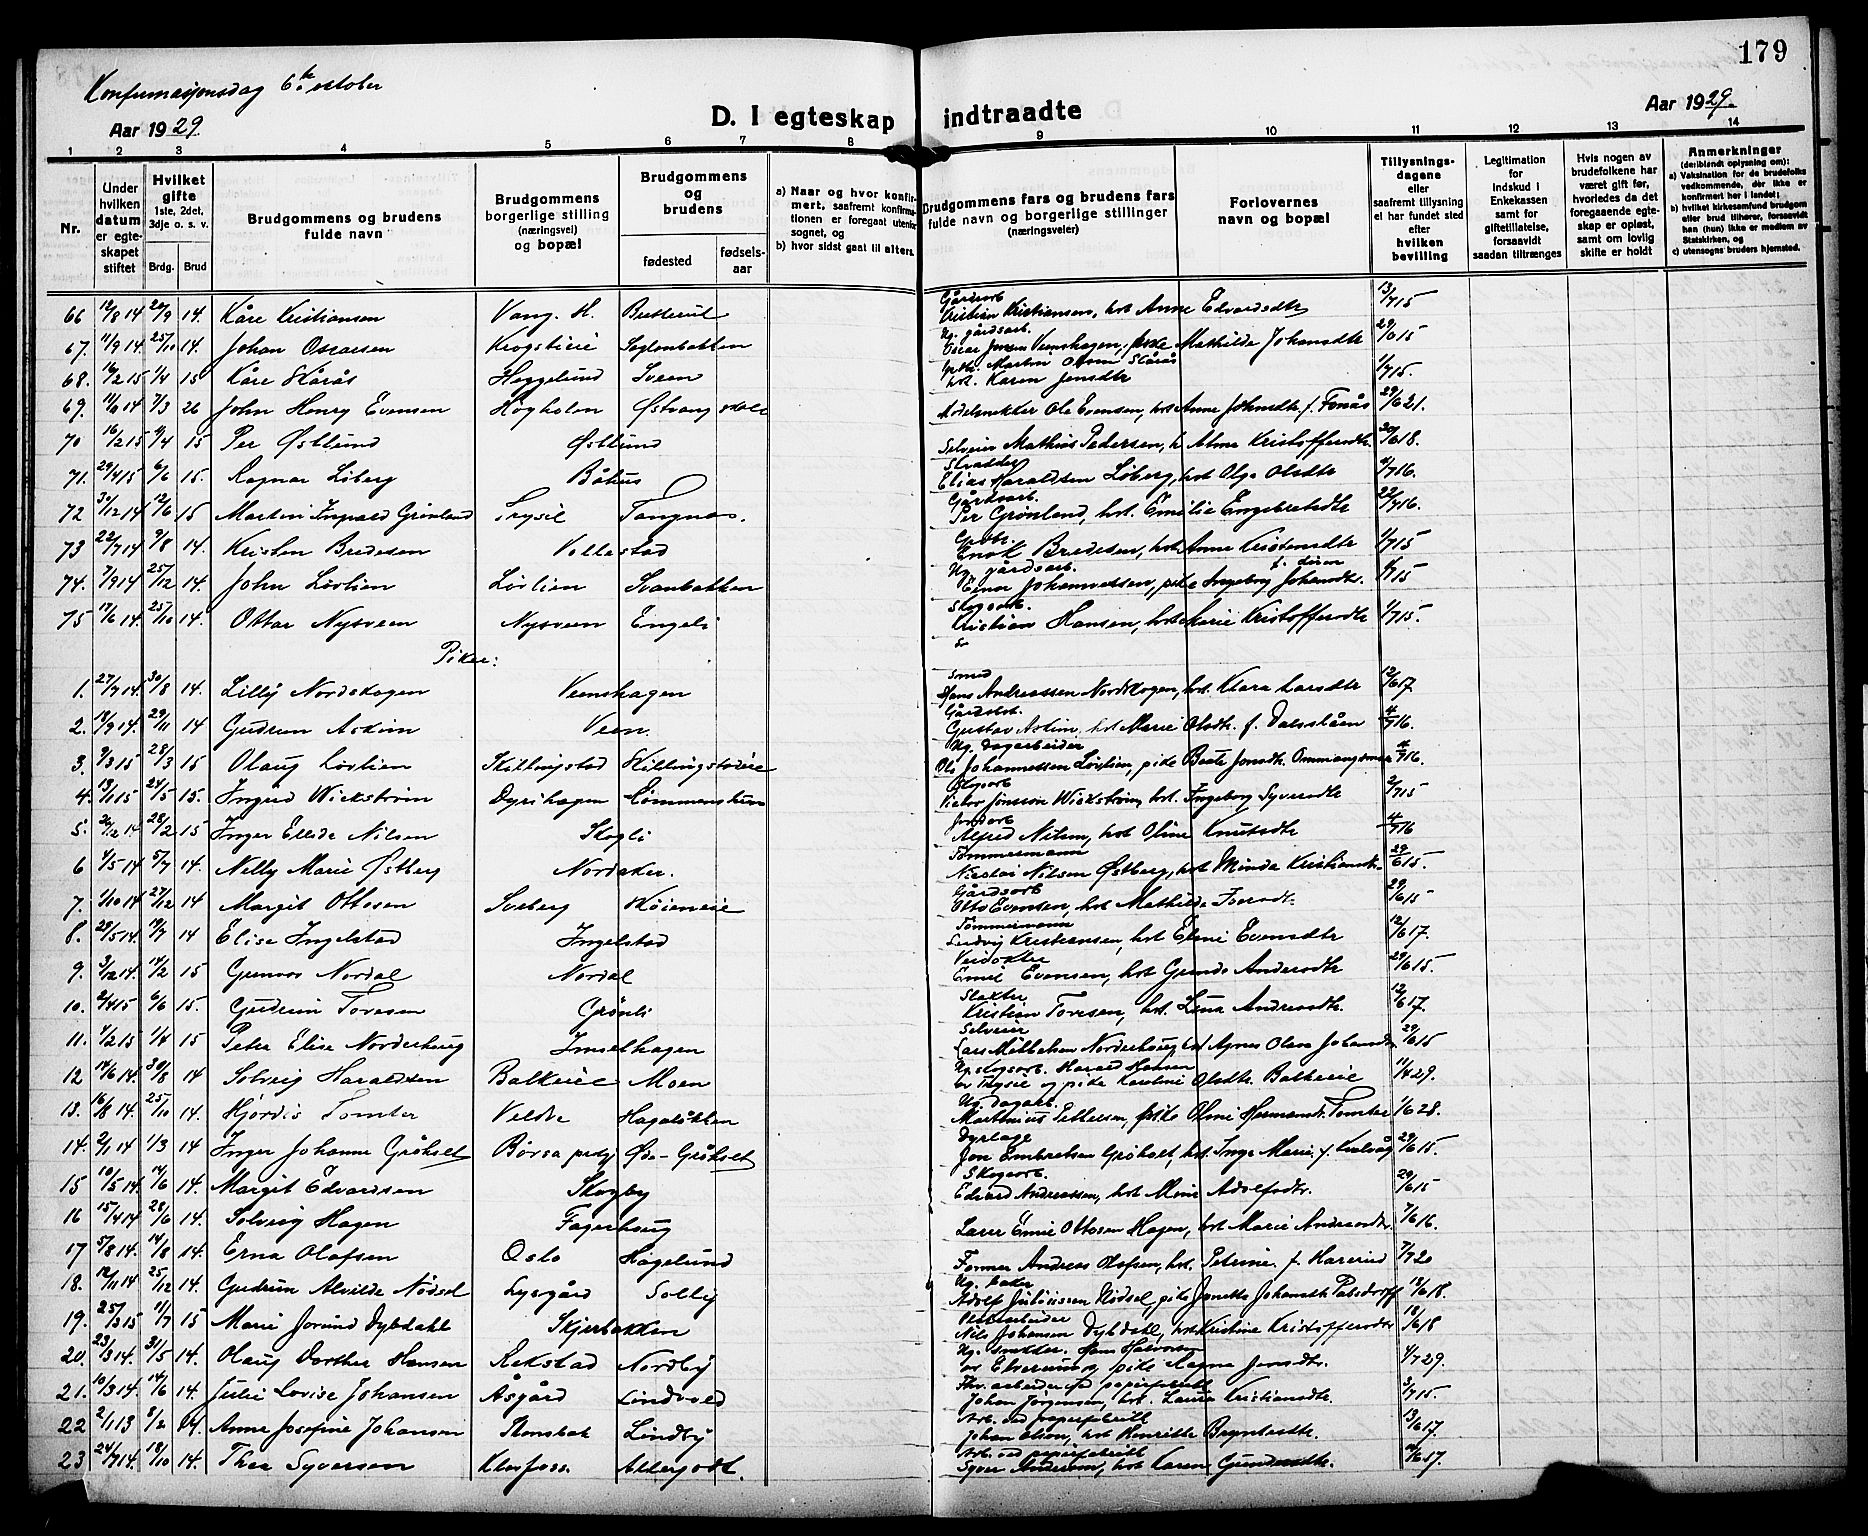 179
Konfirmasjonsdag 6te oktober
Aar 1929
D. I egteskap indtraadte
Aar 1929
1 2 3 4 5 6 7 8 9 10 11 12 13 14
Nr.
Under hvilken datum er egteskapet stiftet
Hvilket gifte 1ste, 2det, 3dje o. s. v.
Brdg. Brud
Brudgommens og brudens fulde navn
Brudgommens borgerlige stilling (næringsvei) og bopæl
Brudgommens og brudens
fødested
fødselsaar
a) Naar og hvor konfirmert, saafremt konfirmationen er foregaat utenfor sognet, og
b) hvor sidst gaat til alters.
Brudgommens fars og brudens fars fulde navn og borgerlige stillinger (næringsveier)
Forlovernes navn og bopæl
Tillysningsdagene eller saafremt tillysning ei har fundet sted efter hvilken bevilling
Legitimation for indskud i Enkekassen samt for giftetillatelse, forsaavidt saadan tiltrænges
Hvis nogen av brudefolkene har været gift før, hvorledes da det foregaaende egteskap er opløst, samt om lovlig skifte er holdt
Anmerkninger (deriblandt oplysning om):
a) Vaksination for de brudefolks vedkommende, der ikke er konfirmert her i landet;
b) hvilket kirkesamfund brudgom eller brud tilhører, forsaavidt han (hun) ikke er medlem av Statskirken, og
c) utensogns bruders hjemsted.
66 12/8 14 20/9 14. Kåre Kristiansen Vang. H. Kristian Kristiansen, hst Anne Edvardsdtr 13/7 15
67. 11/9 14. 25/10 14. Johan Oscarsen Ug. gårdsarb. Oscar Jensen Veenshagen, pike Mathilde Johansdtr
68. 16/2 15 1/4 15 Kåre Skårås Heggelund Sveen Martin Olsen Skårås hst. Karen Jensdtr 1/7 15.
69. 7/3 26 John Henry Evensen Høgholen Østvang Ole Evensen, hst Anne Johnsdtr. f. Fonås 29/6 21.
70 16/2 15 4/4 15 Per Østlund Østlund Selveier Mathias Pedersen, h. Alma Kristoffersdtr. 20/6 18.
71. 29/4 15 6/6 15. Ragnar Löberg Båhus Skredder Elias Haraldsen Löberg, hst Olga Olsdtr 7 16.
72 30/12 14 12/6 15 Martin Ingvald Grönland Trysil Tangnes. Gårdsarb. Per Grönland, hst. Emilie Engebretsdtr 22/7 16.
73 22/7 14 9/8 14. Kristen Bredesen Vollestad Enok Bredesen, hst Anne Kristensdtr 1/7 15
74. 7/9 14 25/12 14. John Lövlien Lövlien Svenbakken Ug. gårdsarb. Einar Johannessen, pike Ingeborg Johansdtr. 7 15
75 17/6 14. 25/10 14. Ottar Nysveen Nysveen Engeli Skogsarb. Kristian Hansen, hst Marie Kristoffersdtr 1/7 15.
Piker:
1. 27/7 14. 30/8 14. Lilly Nordskogen Veenshagen Smed Hans Andreassen Nordskogen, hst. Klara Larsdtr 12/6 17.
2. 18/9 14. 29/11 14 Gudrun Askim Veen. Gustav Askim, hst Marie Olsdtr. f. Dalsslåen 4/7 16.
3. 9/3 15 28/3 15 Olaug Lövlien Skillingstad Ug. Dagarbeider Ole Johannessen Lövlien, pike Beate Jonsdtr. 4/7 16.
4. 13/1 15 24/5 15. Ingrid Wickström Dyrihagen Victor Jonsson Wickström, hst. Ingeborg Syversdtr 2/7 15
5. 26/12 14 28/2 15 Inger Elida Nilsen Skogli Jordarb Alfred Nilsen, hst Oline Knutsdtr 4/7 16
6 4/5 14 5/7 14. Nelly Marie Östberg Nordaker. Tömmermann Nicolai Nilsen Østberg, hst Minda Kristiansdtr. 29/6 15.
7. 1/10 14 27/12 14 Margit Ottosen Solberg Gårdsarb Otto Evensen, hst Mathilde 29/6 15
8. 29/5 14. 19/7 14 Elise Ingelstad Ingelstad Tömmermann Ludvig Kristiansen, hst Elini Evensdtr 12/6 17.
9. 3/12 14. 14/2 15 Gunvor Nordal Nordal Emil Evensen, hst Gunda Andersdtr 29/6 15.
10. 2/4 15 6/6 15. Gudrun Toresen Grönli Slakter Kristian Toresen, hst. Lena Andersdtr. 12/6 17.
11. 4/2 15 1/4 15 Petra Elise Norderhaug Imselhagen Selveier Lars Mikkelsen Norderhaug hst Agnes Olava Johansdtr 29/6 15
12 14/6 14. 30/8 14 Solveig Haraldsen Balkeeie Moen Ug. skogsarb. Harald Hansen av Trysil og pike Karoline Olsdtr. Balkeeie 11/4 29.
13. 16/8 14. 25/10 14. Hjördis Tomter Veldre Hagaløkken Ug. Dagarb. Martinius Pettersen, pike Oline Hermansdtr. Tomter 1/6 28.
14. 2/1 14 1/3 14 Inger Johanne Gröholt Börsa prstgj. Øde-Gröholt Dyrlæge Jon Embretsen Gröholt, hst. Inga Marie, f. 29/6 15.
15 10/5 14. 14/6 14. Margit Edvardsen Skogby Skogsarb. Edvard Andreassen, hst Mina Adolfsdtr. 29/6 15
16 15/4 14 28/6 14. Solveig Hagen Fagerhaug Lærer Emil Ottosen Hagen, hst Marie Andersdtr. 7/6 16.
17 5/8 14. 14/8 14. Erna Olafsen Oslo Høgelund Former Andreas Olafsen, hst. Petrine f. Harerud 7/7 20
18. 12/11 14 25/12 14. Gudrun Alvilde Nödsel Lysgård Solby Ug. baker Adolf Juliussen Nödsel, pike Janetta Johansdtr. 18/6 18.
19. 25/3 15 11/7 15 Marie Jorund Dybdahl Skjerbakken Nils Johansen Dybdahl, hst Kristine Kristoffersdtr 18/6 18
20. 23/3 14. 31/5 14. Olaug Dorthea Hansen Rekstad Nordby Ug. snekker. Hans Halvorsen av Elverum og pike Ragna Jensdtr. 4/7 29.
21. 10/3 14. 14/6 14. Julie Lovise Johansen Åsgård Lindvold arbeider ved papirfabrikk Johan Jørgensen, hst. Laura Kristiansdtr. 3/7 15.
22 2/1 13 8/2 14. Anne Josefine Johansen Lindby Arb. ved papirfabrikk Johan Olsen, hst Henriette Bryntesdtr. 13/6 17.
23 24/7 14. 18/10 14. Thea Syversen Klosfoss. Arb. ved papirfabrikk Syver Andersen, hst Karen Gundersdtr.